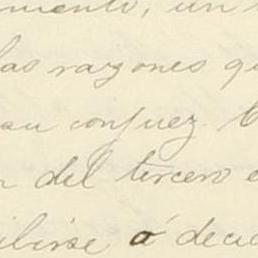 mento, un
las razones qu
su conjuez.
n del tercero e
ibirse ó decid